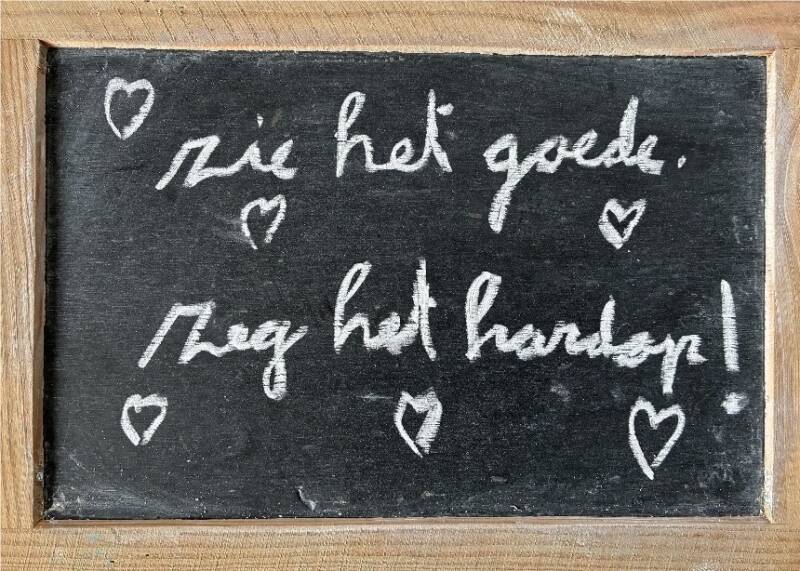 zie het goede.
zeg het hardop!